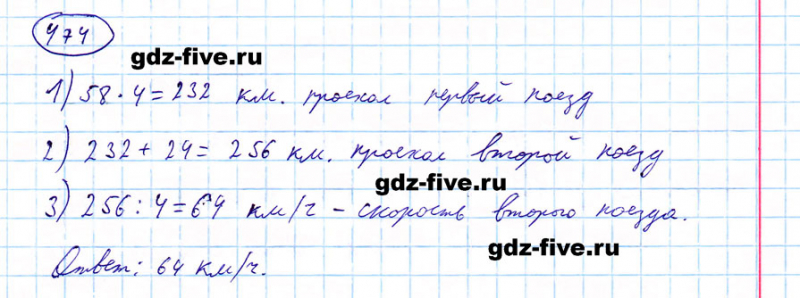 474
gdz-five.ru
1) 58 · 4 = 232 км. проехал первый поезд
2) 232 + 24 = 256 км. проехал второй поезд
gdz-five.ru
3) 256 : 4 = 64 км/ч - скорость второго поезда.
gdz-five.ru
Ответ: 64 км/ч.